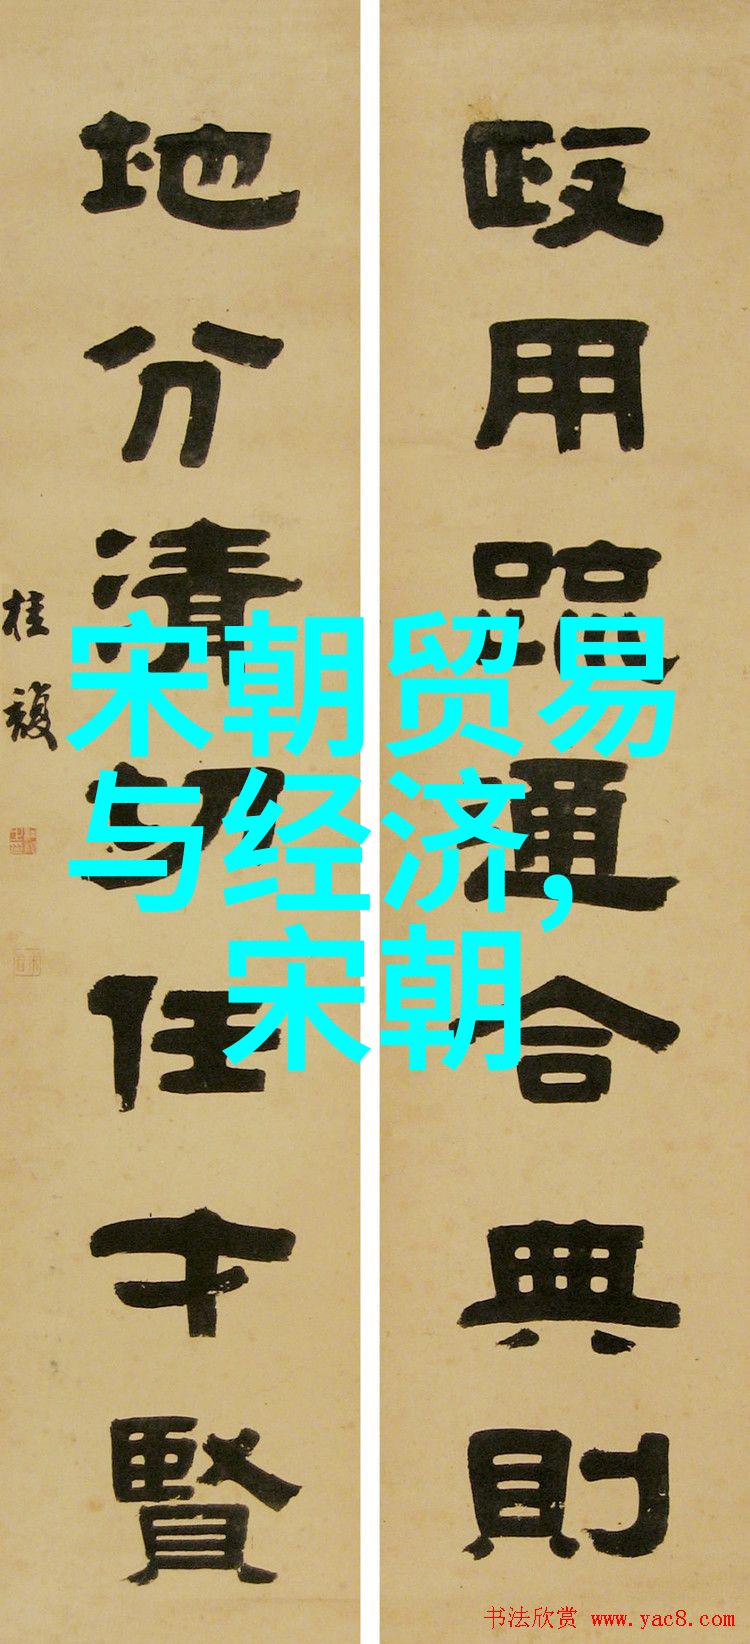 政用疏通合典則
地分清切任才賢
桂馥
宋朝贸易
与经济,
宋朝
书法欣赏 www.yac8.com